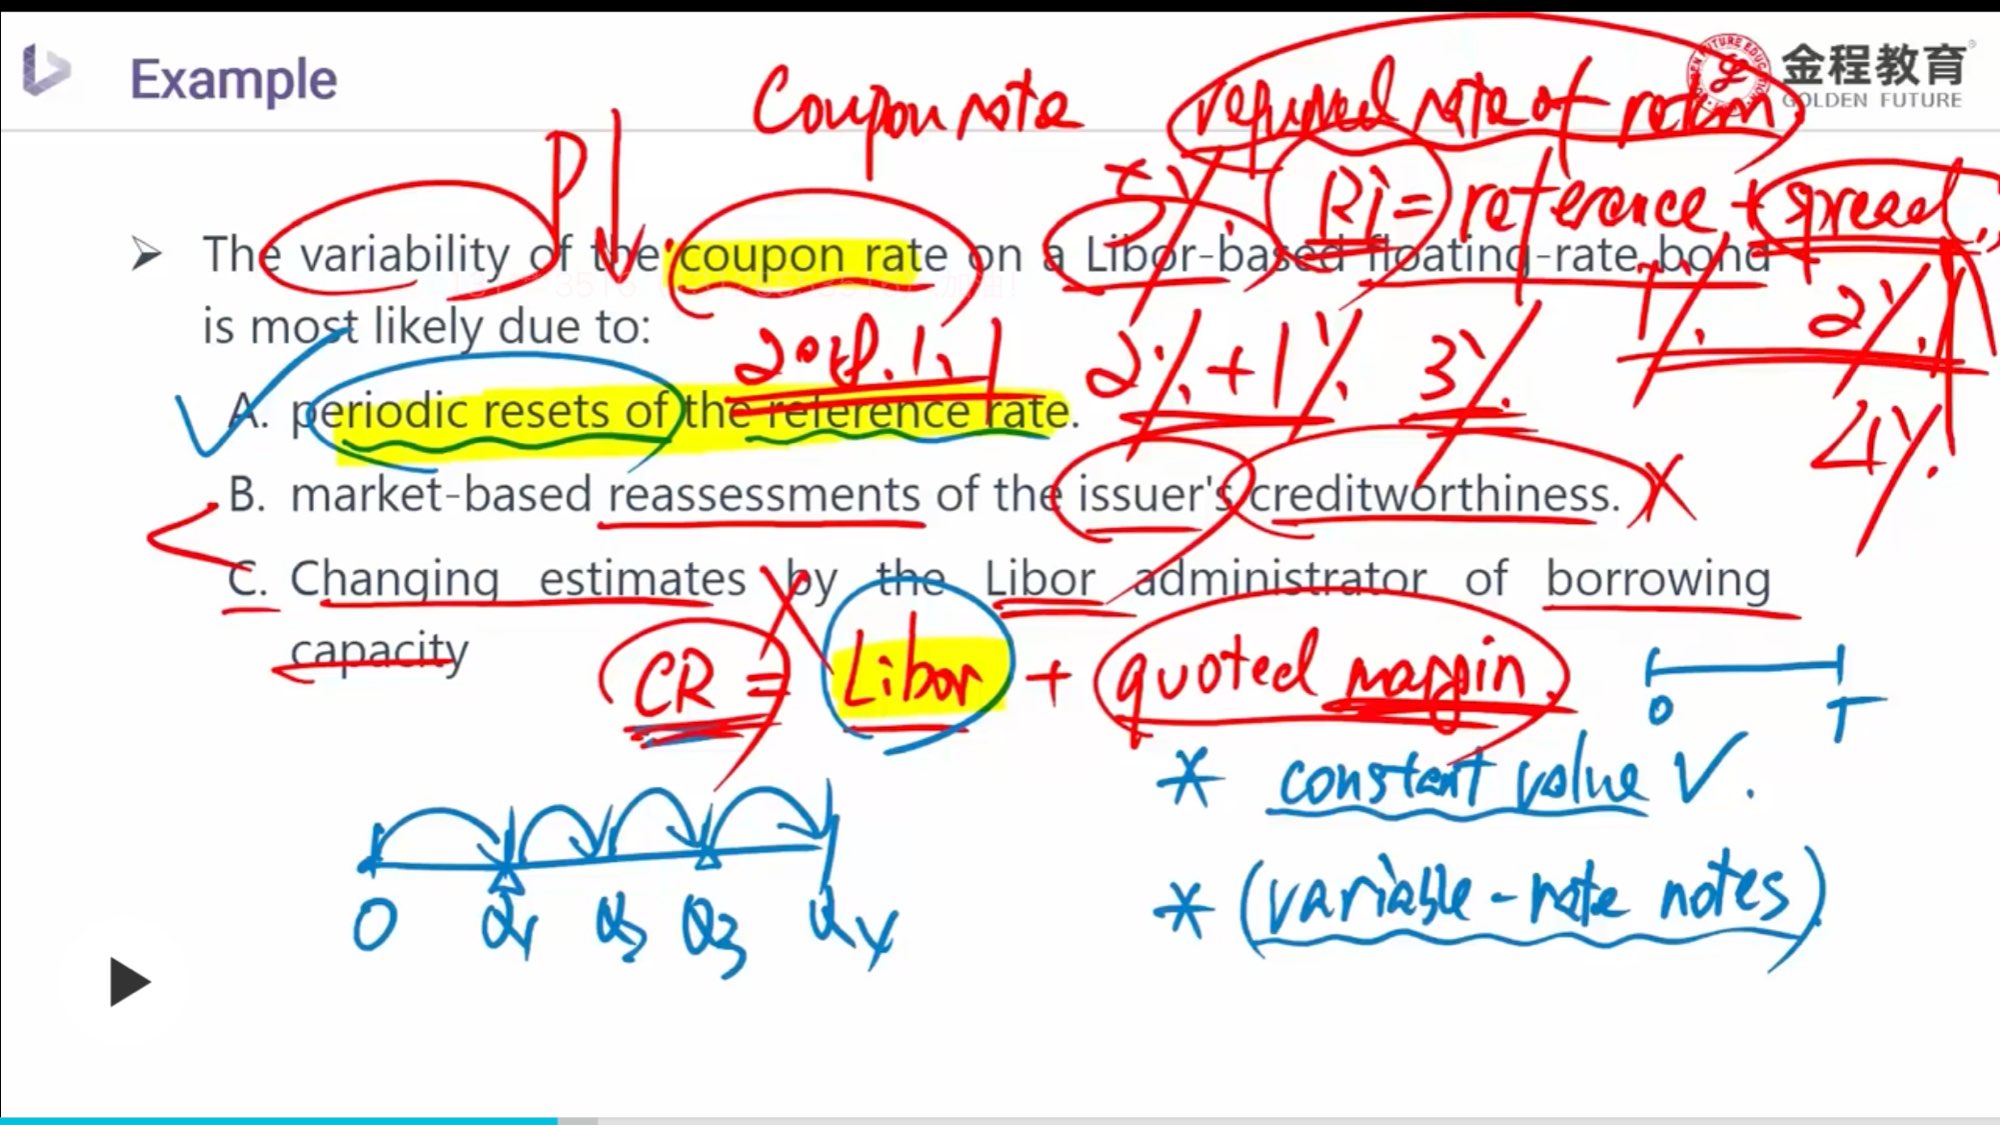 Example
金程教育
GOLDEN FUTURE
Coupon rate
required rate of return
P↓
5%
Ri = reference + spread
The variability of the coupon rate on a Libor-based floating-rate bond
is most likely due to:
1% 2%
2% + 1% 3%
4%
A. periodic resets of the reference rate.
B. market-based reassessments of the issuer's creditworthiness.
C. Changing estimates by the Libor administrator of borrowing
capacity
CR = Libor + quoted margin
0 T
* constant value √.
* (variable-rate notes)
0 Q1 Q2 Q3 Q4